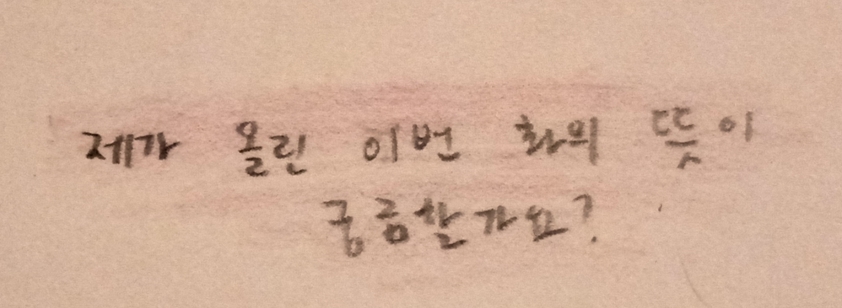 제가 올린 이번 화의 뜻이
궁금할가요?